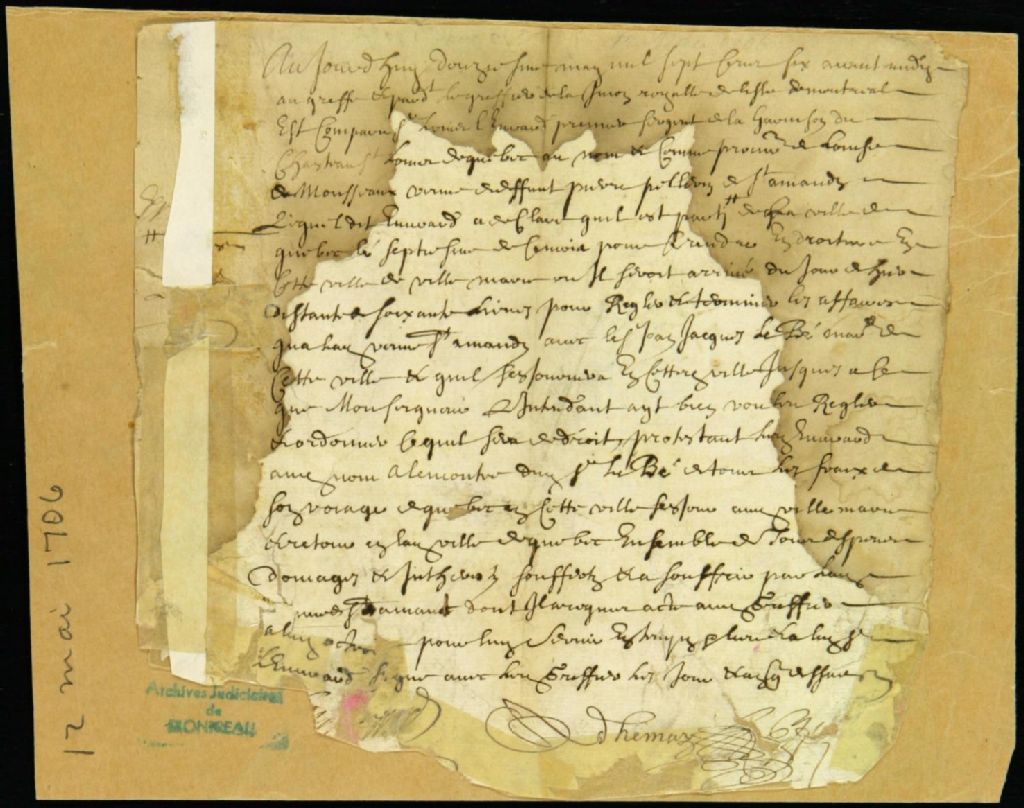 Aujourdhuy douziesme may mil sept cent six avant midy
au greffe & pardt le greffier de la Juron royalle de lisle de montreal
Est Comparu Sr premier sergent de la Garnison du
Chasteau St Louis de quebec au nom & Comme procur de Louise
de Mousseaux veuve de deffunt pierre pelletier de St amand
Lequel dit a declaré quil est party de la ville de
quebec le septiesme de ce mois pour se rendre En droiture En
Cette ville de ville marie ou Il seroit arrivé du Jour dhier
distante de soixante Lieues pour Regler & terminer les affaires
qua lad veuve St amand avec le Sr Jacques Le Bé march de
Cette ville & quil sejournera En Cette ville Jusques a ce
que Monseigneur L'Intendant ayt bien voulu Regler
& ordonner ce quil sera de droit, protestant led
aud nom alencontre dud Sr le Bé de tous les fraix de
son voiage de quebec en Cette ville sejour aud ville marie
& retour en lad ville de quebec Ensemble de tous despens
Domages & Interestz soufferts & a souffrir par lad
veuve St amand dont Il a requis acte aud Greffier
a luy octroié pour luy servir En temps & lieu & a led Sr
signé avec led Greffier les Jour & an susd
dhemard
12 mai 1706
Archives Judiciaires
de
MONTREAL